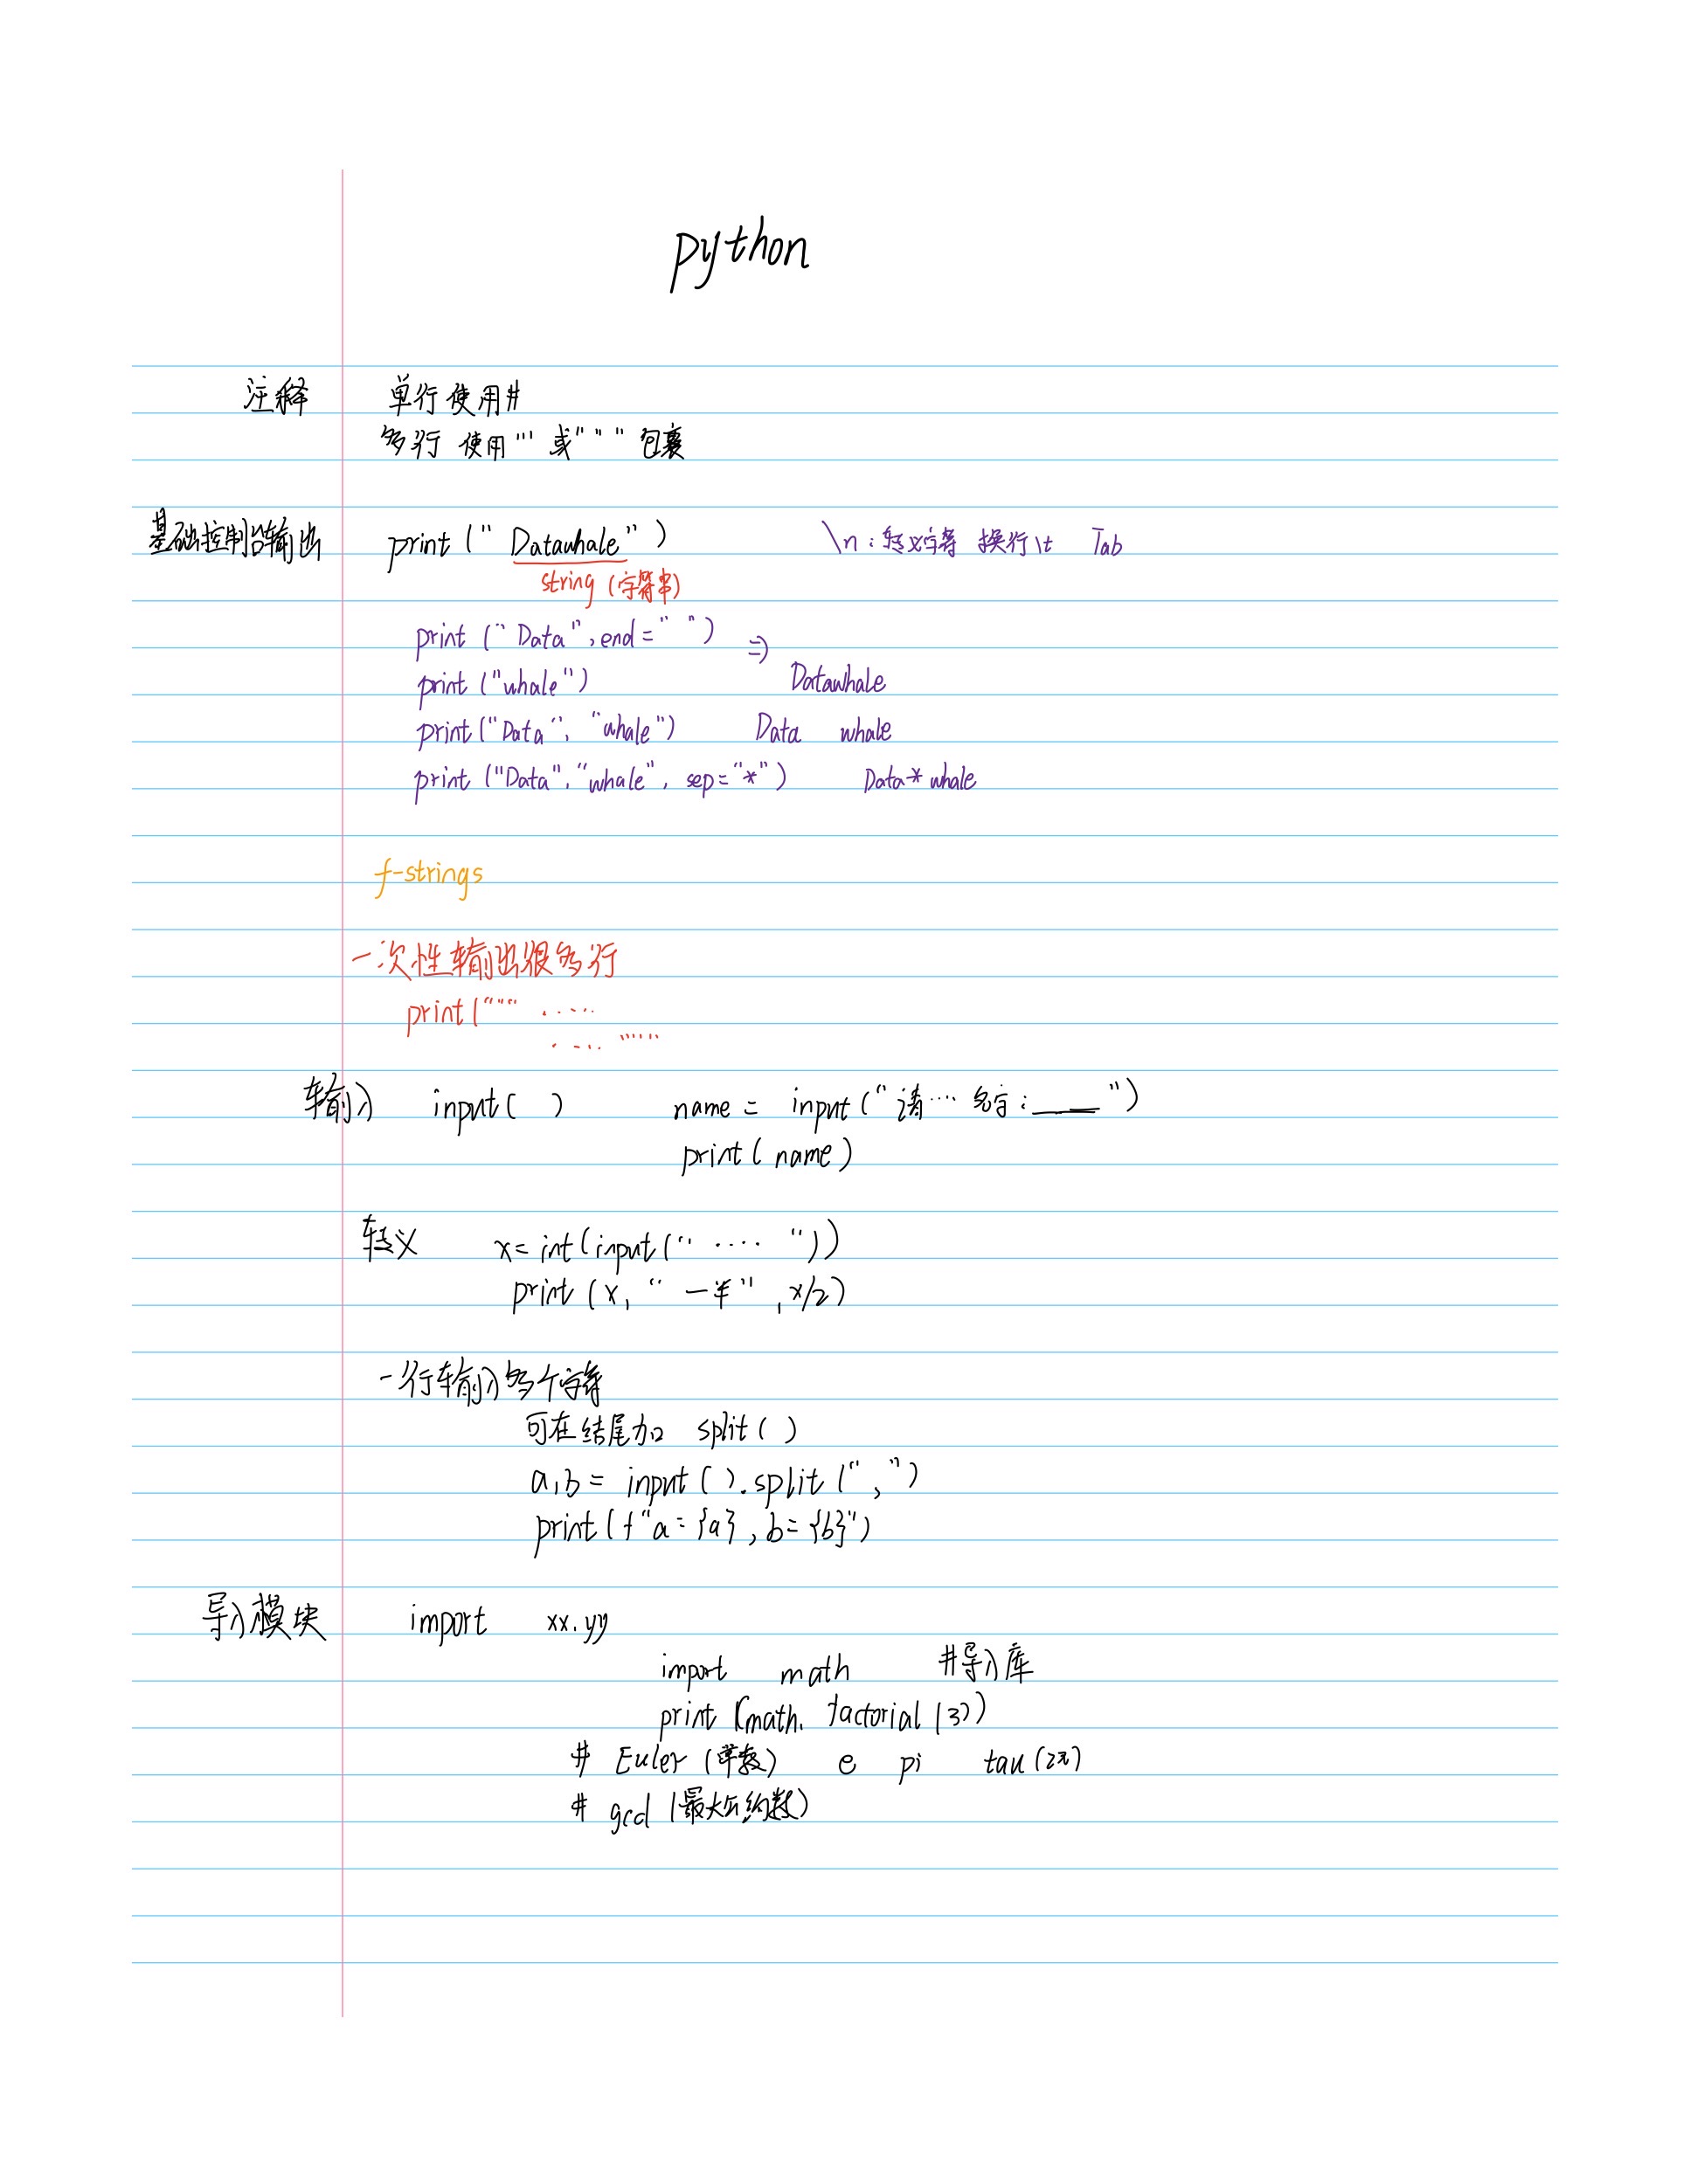 python
注释 单行使用#
多行 使用''' 或""" 包裹
基础控制台输出 print (" Datawhale" ) \n : 转义字符 换行 \t Tab
string (字符串)
print ("Data", end=" ") ⇒
print ("whale") Datawhale
print ("Data", "whale") Data whale
print ("Data", "whale", sep="*") Data*whale
f-strings
一次性输出很多行
print(""" .....
..... """
输入 input( ) name = input("请… 名字:____")
print( name)
转义 x= int(input(" .... "))
print (x, " 一半" , x/2)
一行输入多个字符
可在结尾加 split( )
a,b = input( ).split(",")
print(f"a={a} , b={b}")
导入模块 import xx.yy
import math #导入库
print (math. factorial (3))
# Euler (常数) e pi tau(2π)
# gcd (最大公约数)